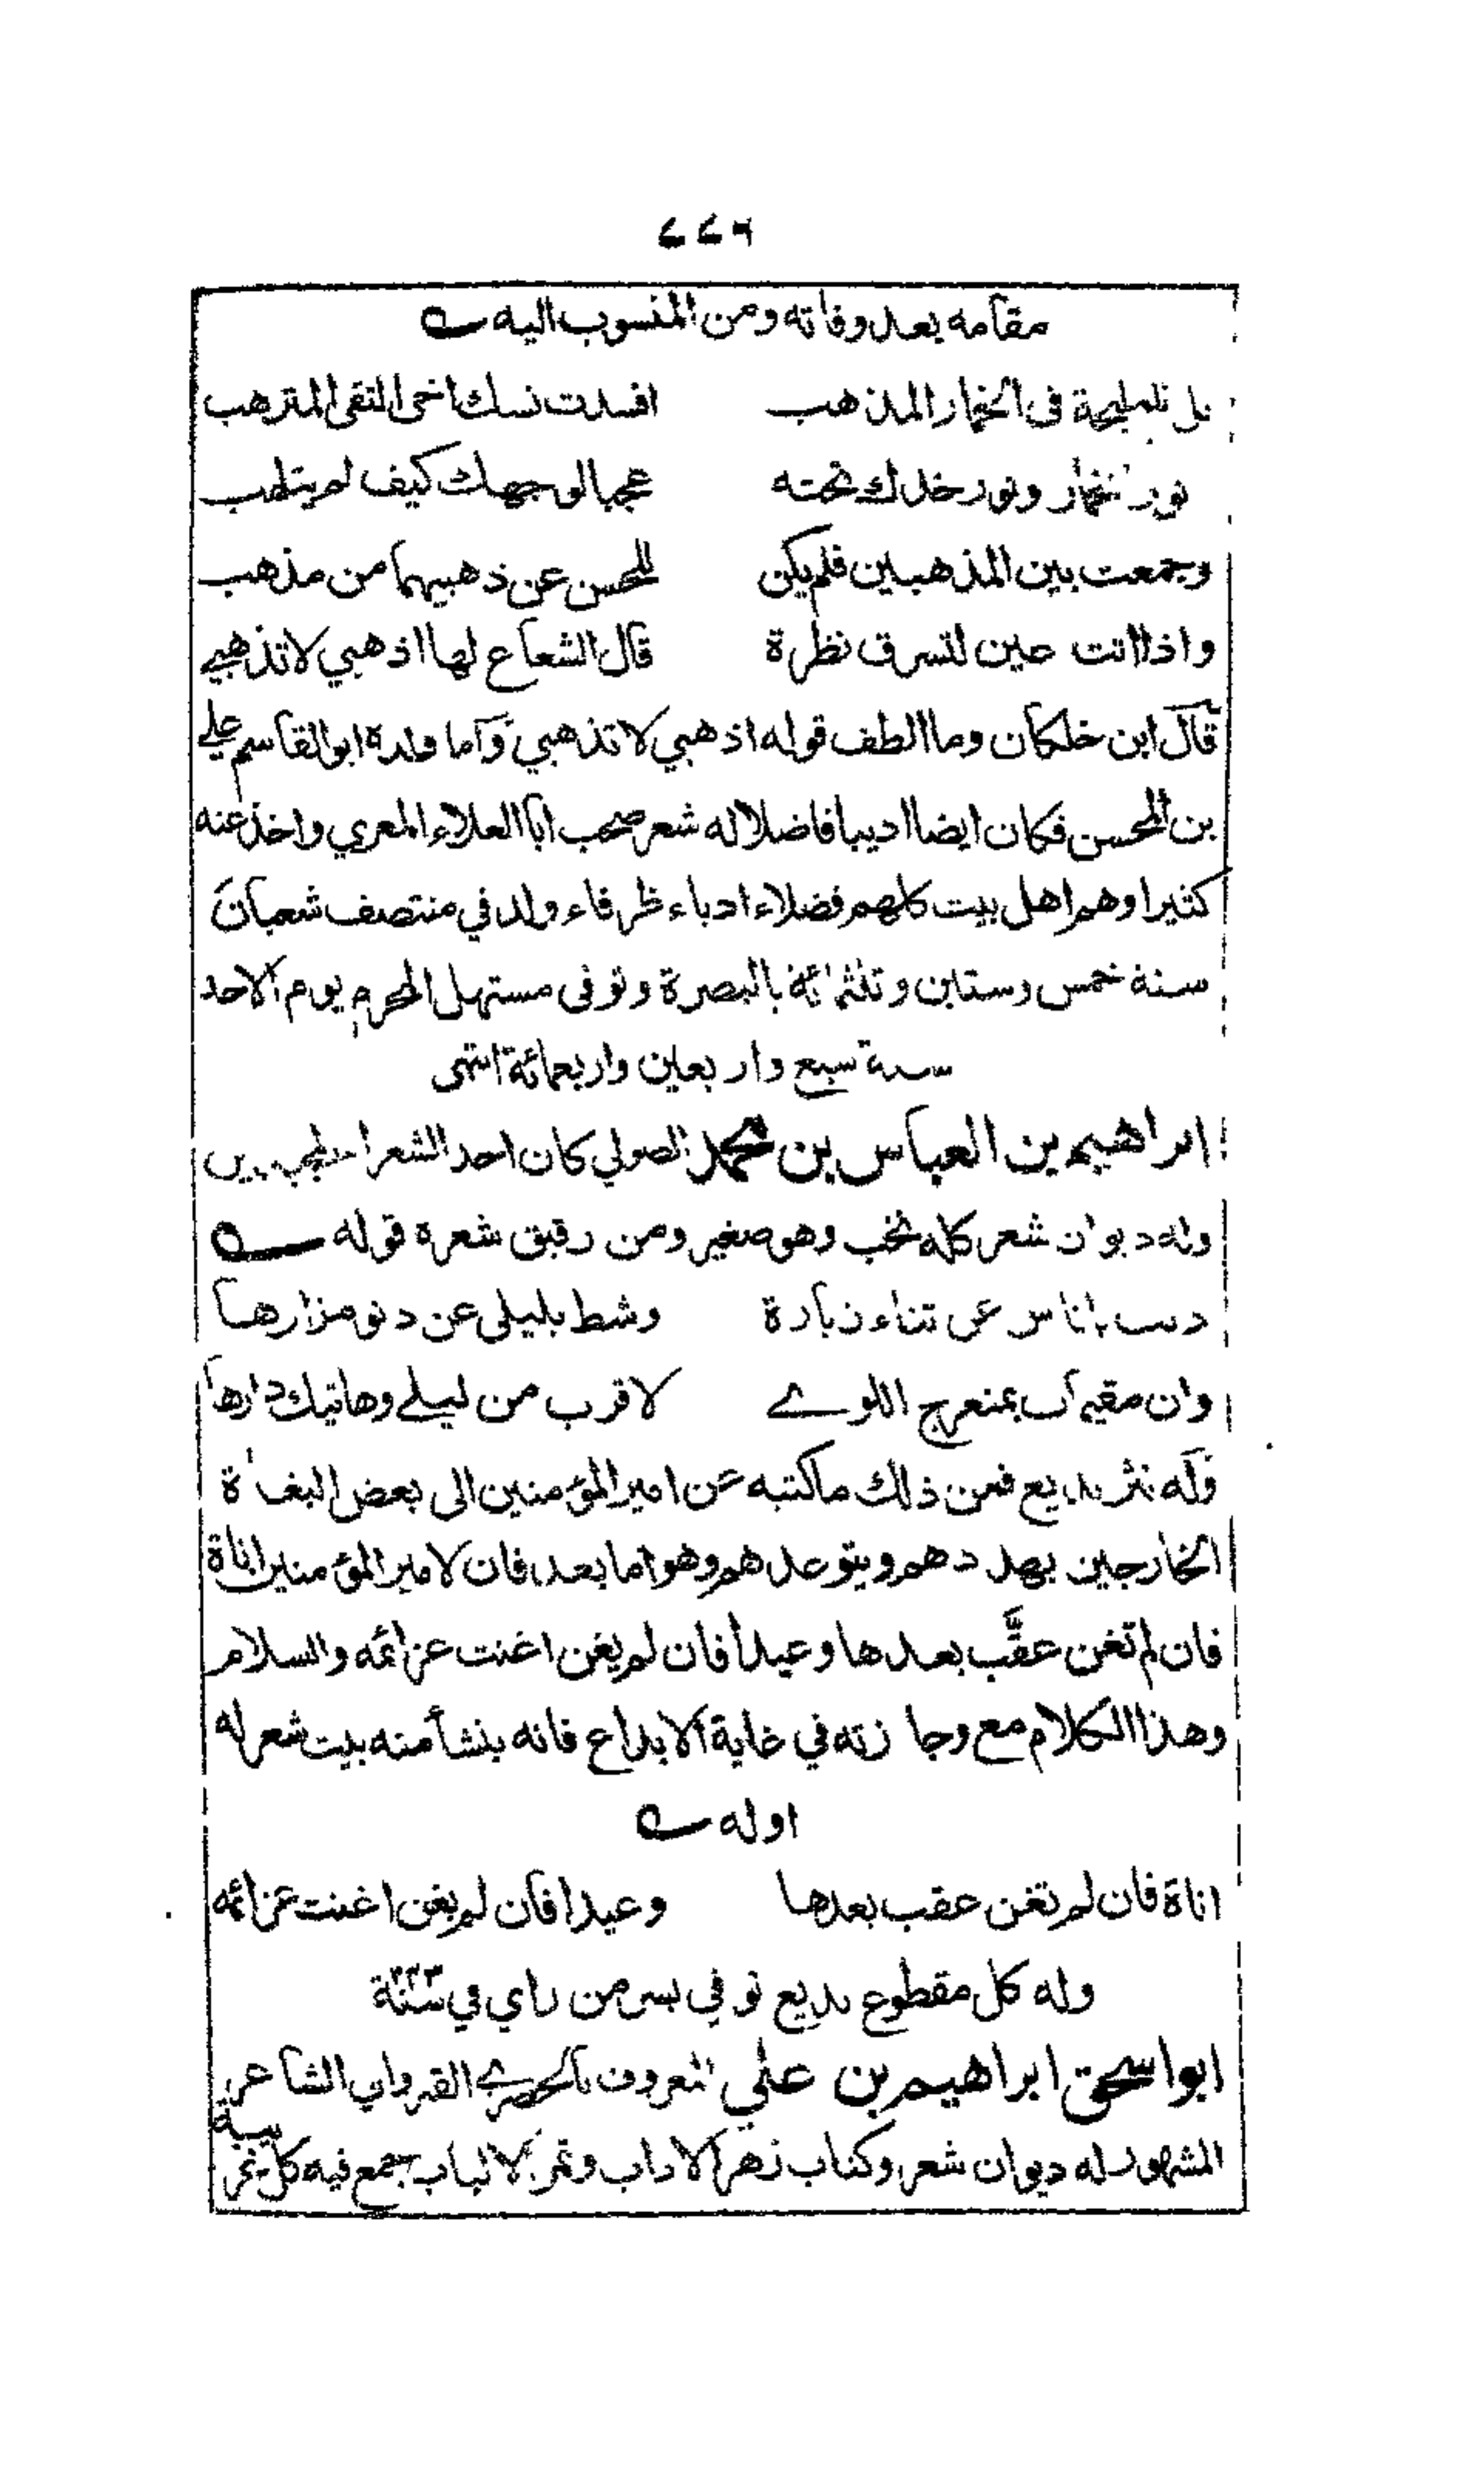 ٤٤٩
مقامه بعد وفاته ومن المنسوب اليه
للمليحة فى الخمار المذهب افسدت نسك اخى التقى المترهب
نور الخمار ونور خدك تحته عجبا لوجهك كيف لم يتلهب
وجمعت بين المذهبين فلم يكن للحسن عن ذهبيهما من مذهب
واذا اتت عين لتسرق نظرة قال الشعاع لها اذهبي لا تذهبي
قال ابن خلكان وما الطف قوله اذهبي لا تذهبي واما ولده ابو القاسم علي
بن المحسن فكان ايضا اديبا فاضلا له شعر صحب ابا العلاء المعري واخذ عنه
كثيرا وهم اهل بيت كلهم فضلاء ادباء ظرفاء ولد في منتصف شعبان
سنة خمس وستين وثلثمائة بالبصرة وتوفى مستهل المحرم يوم الاحد
سنة سبع واربعين واربعمائة انتهى
ابراهيم بن العباس بن محمد الصولي كان احد الشعرا المجيدين
وله ديوان شعر كله نخب وهو صغير ومن رقيق شعره قوله
دنت باناس عن تناء زيارة وشط بليلى عن دنو مزارها
وان مقيمات بمنعرج اللوے لاقرب من ليلے وهاتيك دارها
وله نثر بديع فمن ذلك ما كتبه عن امير المؤمنين الى بعض البغاة
الخارجين يهددهم ويتوعدهم وهو اما بعد فان لامير المؤمنين اناة
فان لم تغن عقّب بعدها وعيدا فان لم يغن اغنت عزائمه والسلام
وهذا الكلام مع وجازته في غاية الابداع فانه ينشأ منه بيت شعر له
اوله
اناة فان لم تغن عقب بعدها وعيدا فان لم يغن اغنت عزائمه
وله كل مقطوع بديع توفي بسر من راي في سنة
ابو اسحق ابراهيم بن علي المعروف بالحصرے القيرواني الشاعر
المشهور له ديوان شعر وكتاب زهر الاداب وثمر الالباب جمع فيه كل غريبة